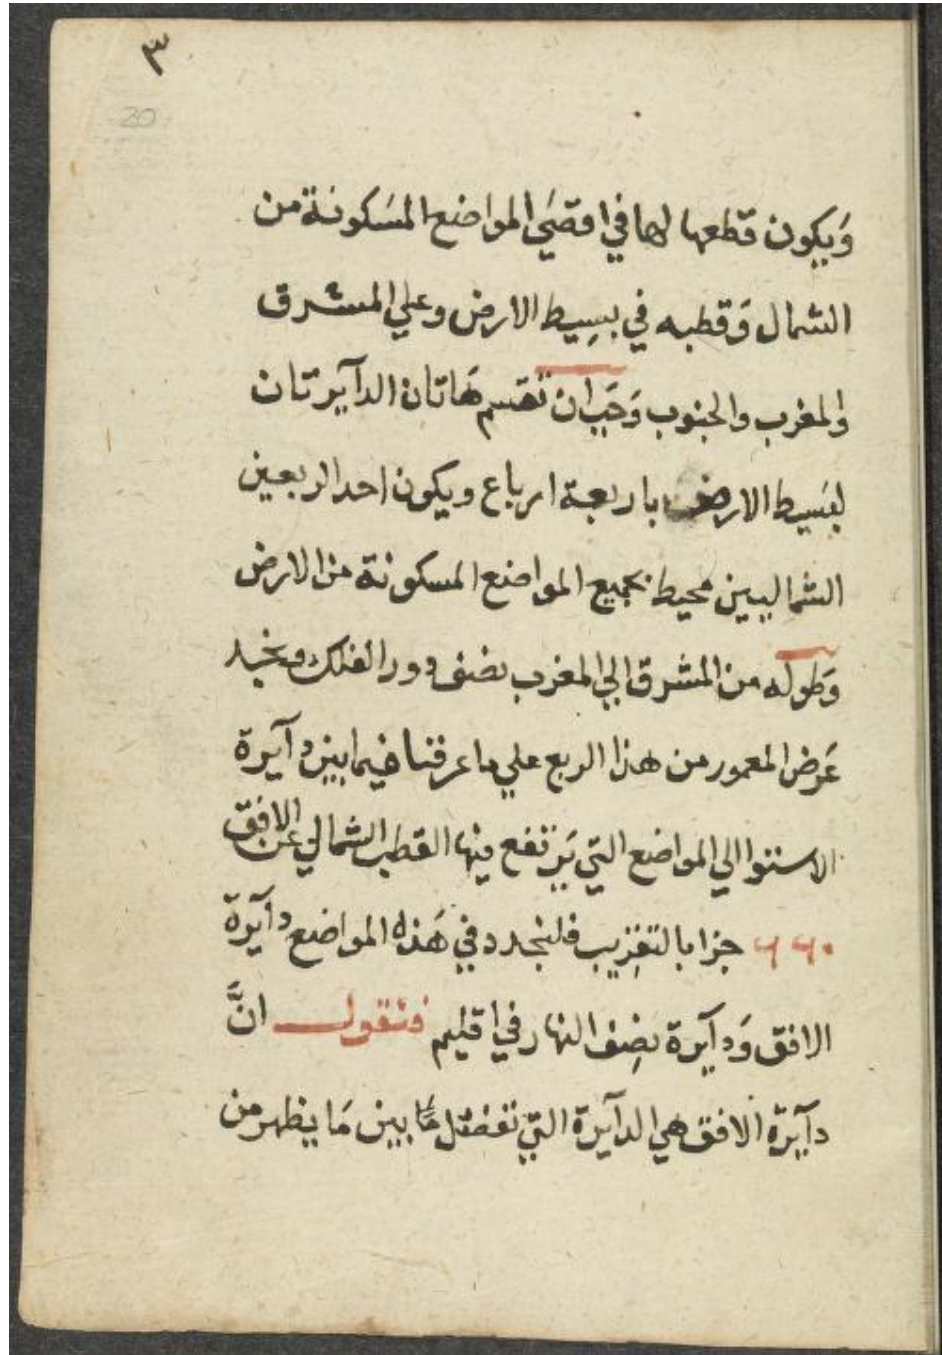 ٣
20
وَيكون قطعها لها في اقصَي المواضع المسَكونة من
الشمال وَقطبه في بسِيط الارض وعلي المشرق
والمغرب والجنوب وَجَب ان تقسم هَاتان الدآيرتان
لبسَيط الارض باربعة ارباع ويكون احد الربعين
الشماليين محيط بجميع المواضع المسكونة من الارض
وَطوله من المشرق الي المغرب نصف دور الفلك ونجد
عَرض المعمور من هذا الربع علي ما عرفنا فيما بين دآيرة
الاستوا الي المواضع التي يَرتفع فيها القطب الشمالي عن الافق
جزا بالتقرِيب فلنجدد في هَذه المواضع دآيرة
الافق وَدآيرة نصِف النهار في اقليم فنقول انَّ
دآيرة الافق هي الدآيرة التي تفصل مَا بين مَا يظهر من